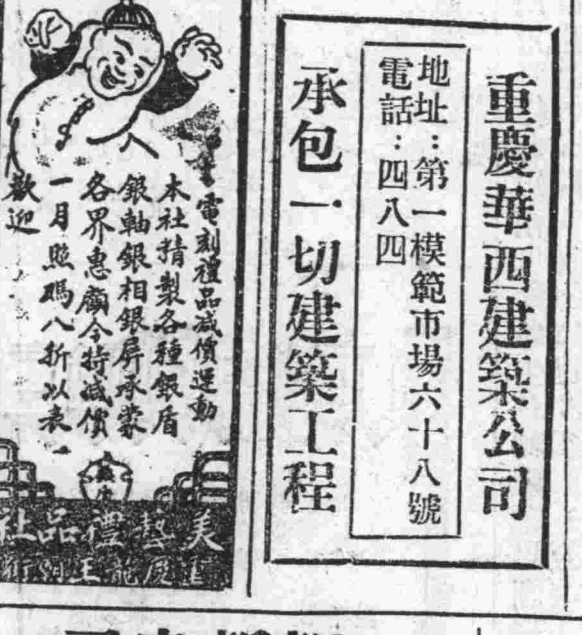 重慶華西建築公司
地址：第一模範市場六十八號
電話：四八四
承包一切建築工程
電刻禮品減價運動
本社精製各種銀盾
銀軸銀相銀屏承蒙
各界惠顧今特減價
一月照碼八折以表
歡迎
美藝禮品社
龍王廟街